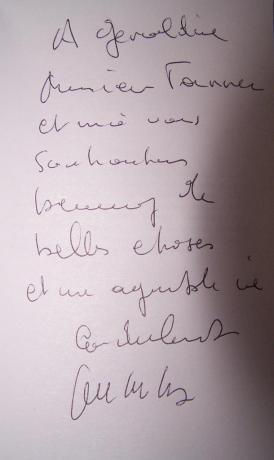 A Géraldine
Monsieur Tanner
et moi vous
souhaitons
beaucoup de
belles choses
et une agréable vie
Cordialement